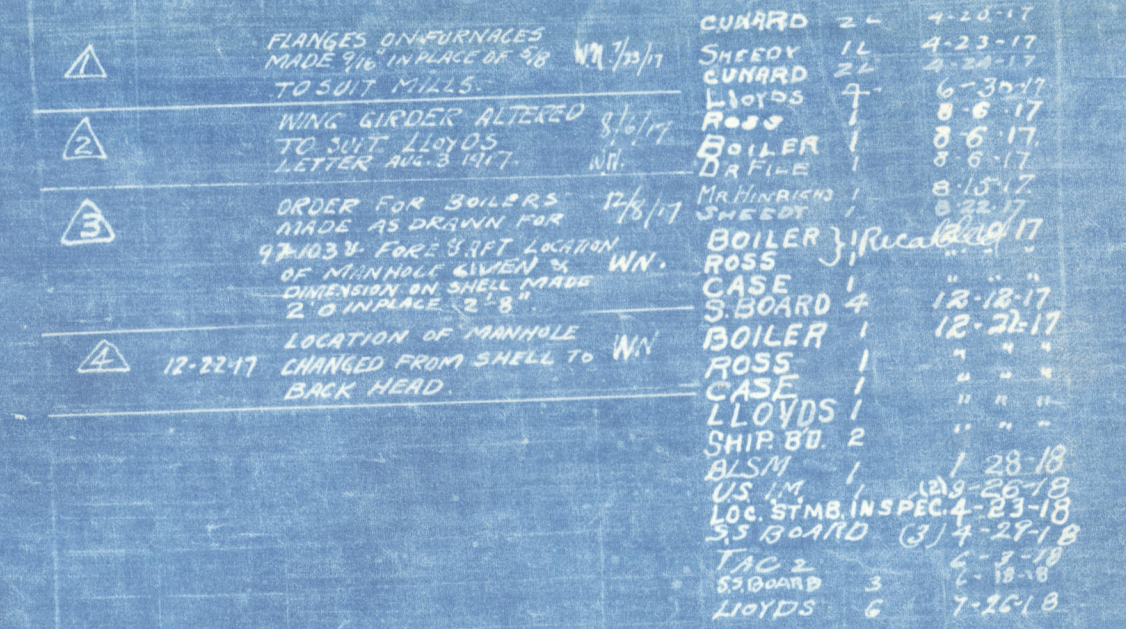 1
FLANGES ON FURNACES
MADE 9/16" IN PLACE OF 5/8
TO SUIT MILLS.
WN. 7/23/17
2
WING GIRDER ALTERED
TO SUIT LLOYDS
LETTER AUG. 3 1917.
8/6/17
WN.
3
ORDER FOR BOILERS
MADE AS DRAWN FOR
97-103 & FORE & AFT LOCATION
OF MANHOLE GIVEN &
DIMENSION ON SHELL MADE
2'0 IN PLACE 2'-8".
12/8/17
WN.
4
12-22-17
LOCATION OF MANHOLE
CHANGED FROM SHELL TO
BACK HEAD.
WN
CUNARD 2L 4-20-17
SHEEDY 1L 4-23-17
CUNARD 2L 4-24-17
LLOYDS 4 6-30-17
ROSS 1 8-6-17
BOILER 1 8-6-17.
DR FILE 1 8-6-17.
MR HINRICHS 1 8-15-17
SHEEDY 1 8-22-17
BOILER } 1 Recalled 17
ROSS 1 " " "
CASE 1 " " "
S. BOARD 4 12-12-17
BOILER 1 12-21-17
ROSS 1 " " "
CASE 1 " " "
LLOYDS 1 " " "
SHIP. BD. 2 " " "
BLSM 1 1 28-18
U.S. I.M. 1 (2) 9-26-18
LOC. STMB. INSPEC. 4-23-18
S.S BOARD (3) 4-29-18
TAC 2 6-3-18
S.S. BOARD 3 6-18-18
LLOYDS 6 7-26-18